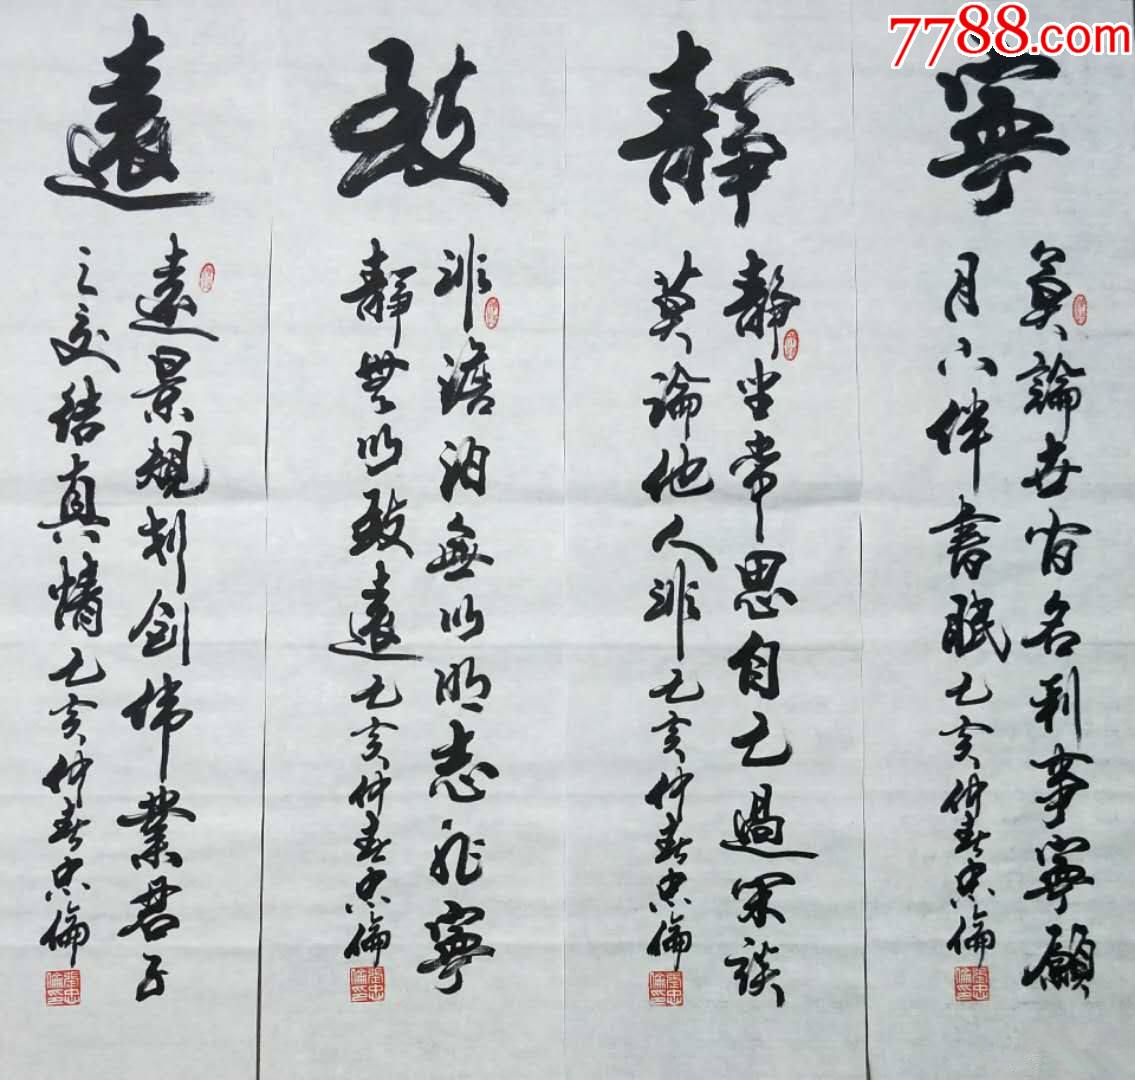 7788.com
寧
莫論世间名利事寧願
月下伴書眠己亥仲春忠倫
靜
靜坐常思自己過闲談
莫論他人非己亥仲春忠倫
致
非澹泊無以明志非寧
靜無以致遠己亥仲春忠倫
遠
遠景規划創偉業君子
之交結真情己亥仲春忠倫